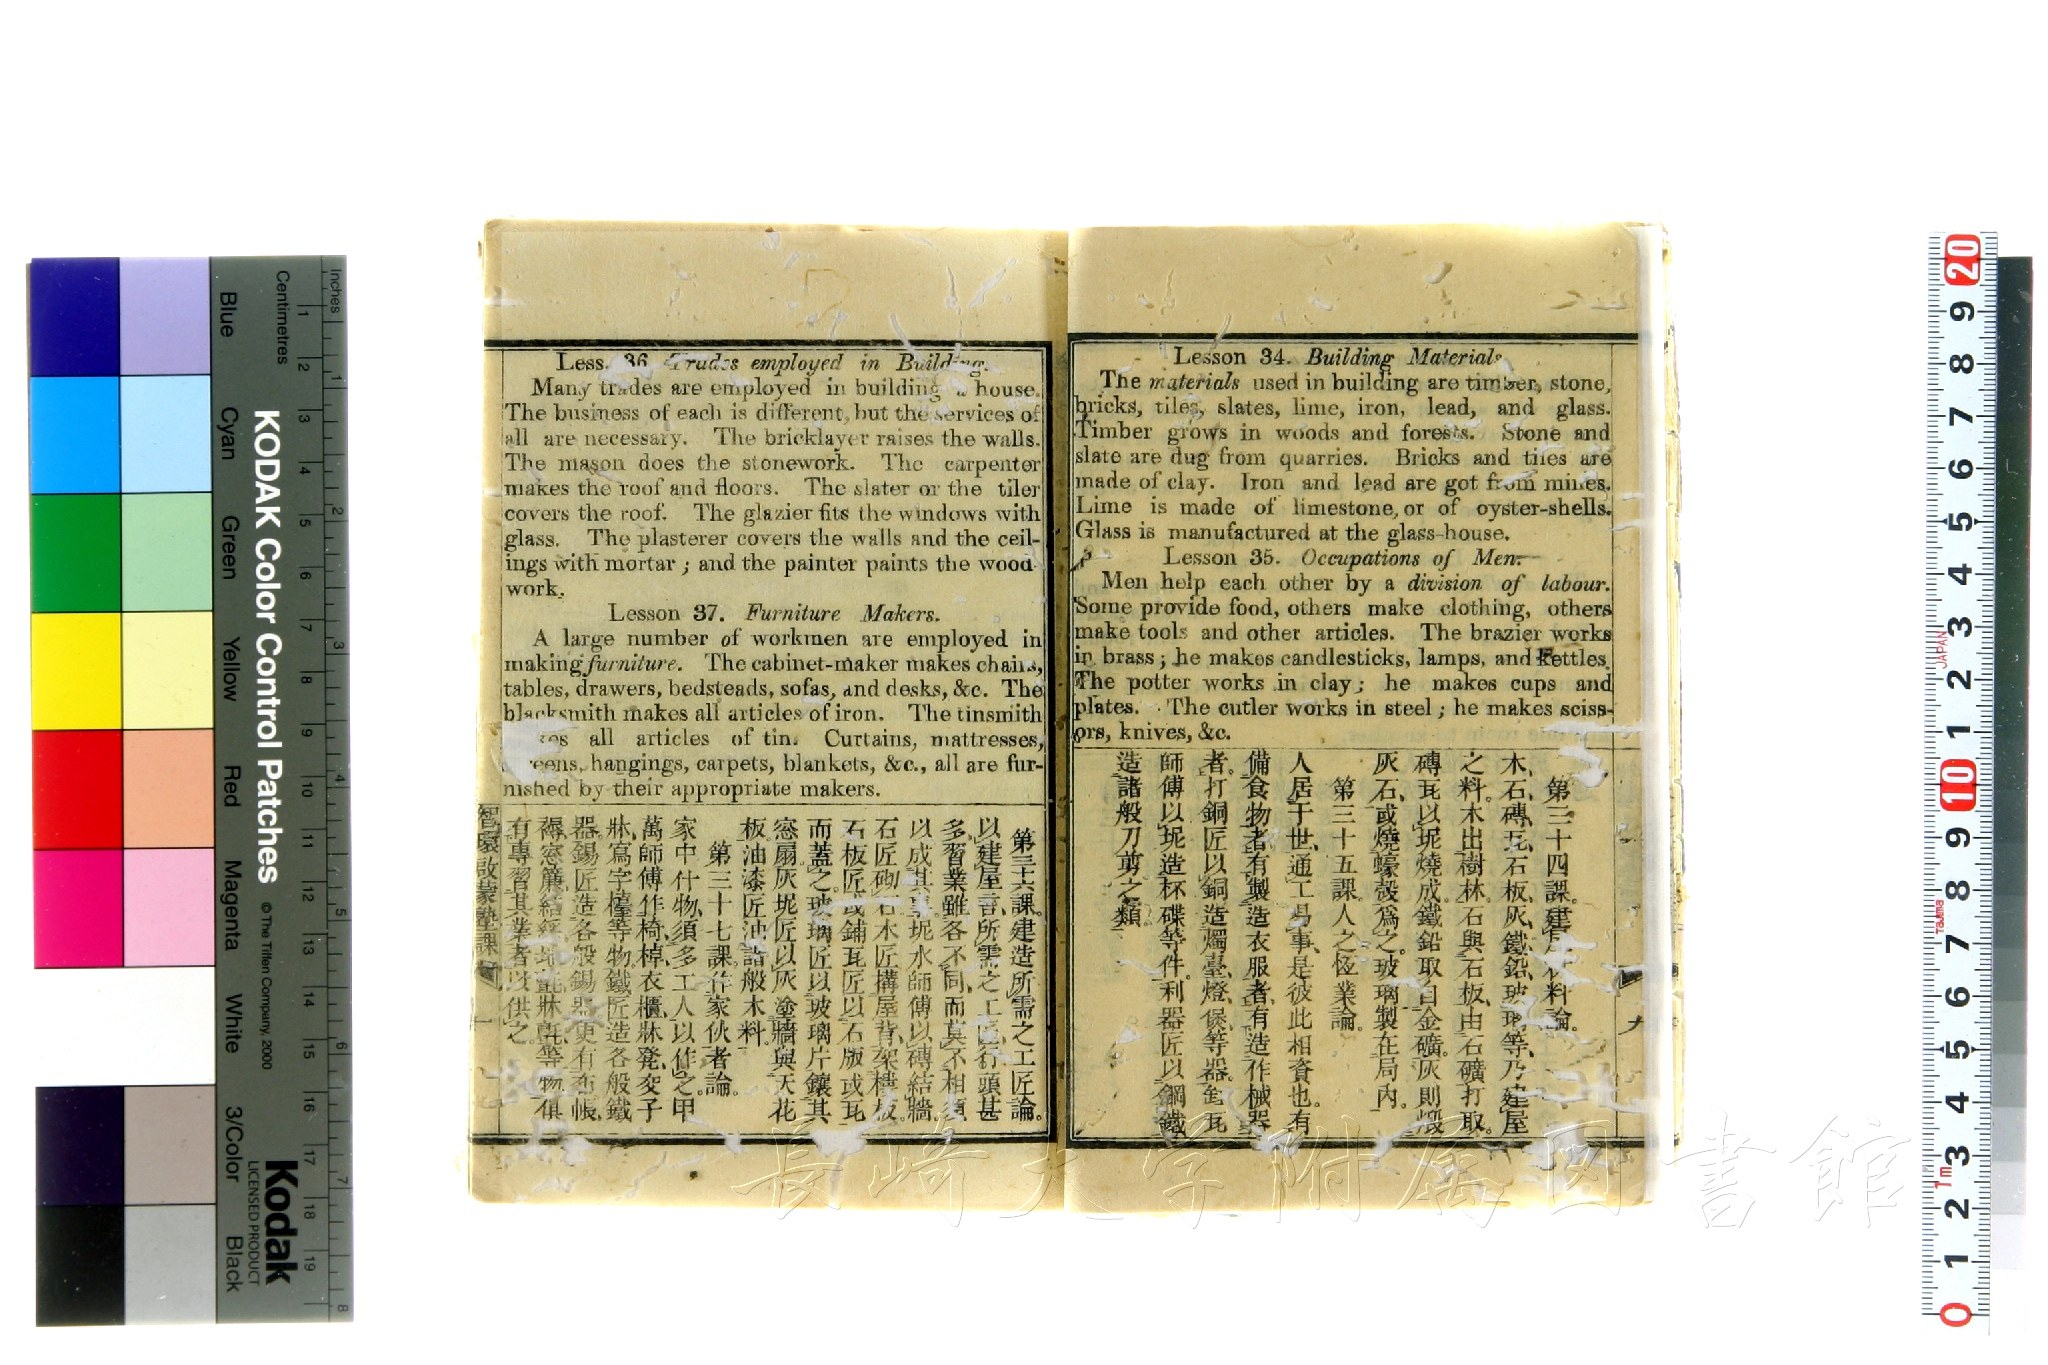 Lesson 34. Building Materials
The materials used in building are timber, stone,
bricks, tiles, slates, lime, iron, lead, and glass.
Timber grows in woods and forests. Stone and
slate are dug from quarries. Bricks and tiles are
made of clay. Iron and lead are got from mines.
Lime is made of limestone, or of oyster-shells.
Glass is manufactured at the glass-house.
Lesson 35. Occupations of Men.
Men help each other by a division of labour.
Some provide food, others make clothing, others
make tools and other articles. The brazier works
in brass; he makes candlesticks, lamps, and kettles
The potter works in clay; he makes cups and
plates. The cutler works in steel; he makes sciss-
ors, knives, &c.
第三十四課。建料論。
木、石、磚、瓦、石板、灰、鐵、鉛、玻璃等、乃建屋
之料。木出樹林。石與石板、由石礦打取。
磚瓦以坭燒成。鐵鉛取自金礦。灰則煅
灰石、或燒蠔殼爲之。玻璃製在局內。
第三十五課。人之恆業論。
人居于世、通工易事、是彼此相資也。有
備食物者、有製造衣服者、有造作械器
者。打銅匠以銅造燭臺、燈、煲等器。缶瓦
師傅以坭造杯碟等件。利器匠以鋼鐵
造諸般刀剪之類。
九
Less. 36. Trades employed in Building.
Many trades are employed in building a house.
The business of each is different, but the services of
all are necessary. The bricklayer raises the walls.
The mason does the stonework. The carpenter
makes the roof and floors. The slater or the tiler
covers the roof. The glazier fits the windows with
glass. The plasterer covers the walls and the ceil-
ings with mortar; and the painter paints the wood-
work.
Lesson 37. Furniture Makers.
A large number of workmen are employed in
making furniture. The cabinet-maker makes chairs,
tables, drawers, bedsteads, sofas, and desks, &c. The
blacksmith makes all articles of iron. The tinsmith
all articles of tin. Curtains, mattresses,
hangings, carpets, blankets, &c., all are fur-
nished by their appropriate makers.
第三十六課。建造所需之工匠論。
以建屋言、所需之工匠行頭甚
多、習業雖各不同、而莫不相須
以成其事。坭水師傅以磚結牆。
石匠砌石。木匠搆屋背、架樓板。
石板匠或鋪瓦匠以石版或瓦
而蓋之。玻璃匠以玻璃片鑲其
窓扇。灰坭匠以灰塗牆與天花
板。油漆匠油諸般木料。
第三十七課。作家伙者論。
家中什物、須多工人以作之。甲
萬師傅作椅、棹、衣櫃、牀、凳、交子
牀、寫字檯等物。鐵匠造各般鐵
器。錫匠造各般錫器。更有布帳、
褥、窓簾、牀氈等物、俱
有專習其業者以供之。
智環啟蒙塾課
KODAK Color Control Patches
© The Tiffen Company, 2000
Kodak
LICENSED PRODUCT
Inches
Centimetres
1
2
3
4
5
6
7
8
9
10
11
12
13
14
15
16
17
18
19
1
2
3
4
5
6
7
8
Blue
Cyan
Green
Yellow
Red
Magenta
White
3/Color
Black
20
9
8
7
6
5
4
3
JAPAN
2
1
10
9
8
7
TAJIMA
6
5
4
3
1m
2
1
0
長崎大学附属図書館